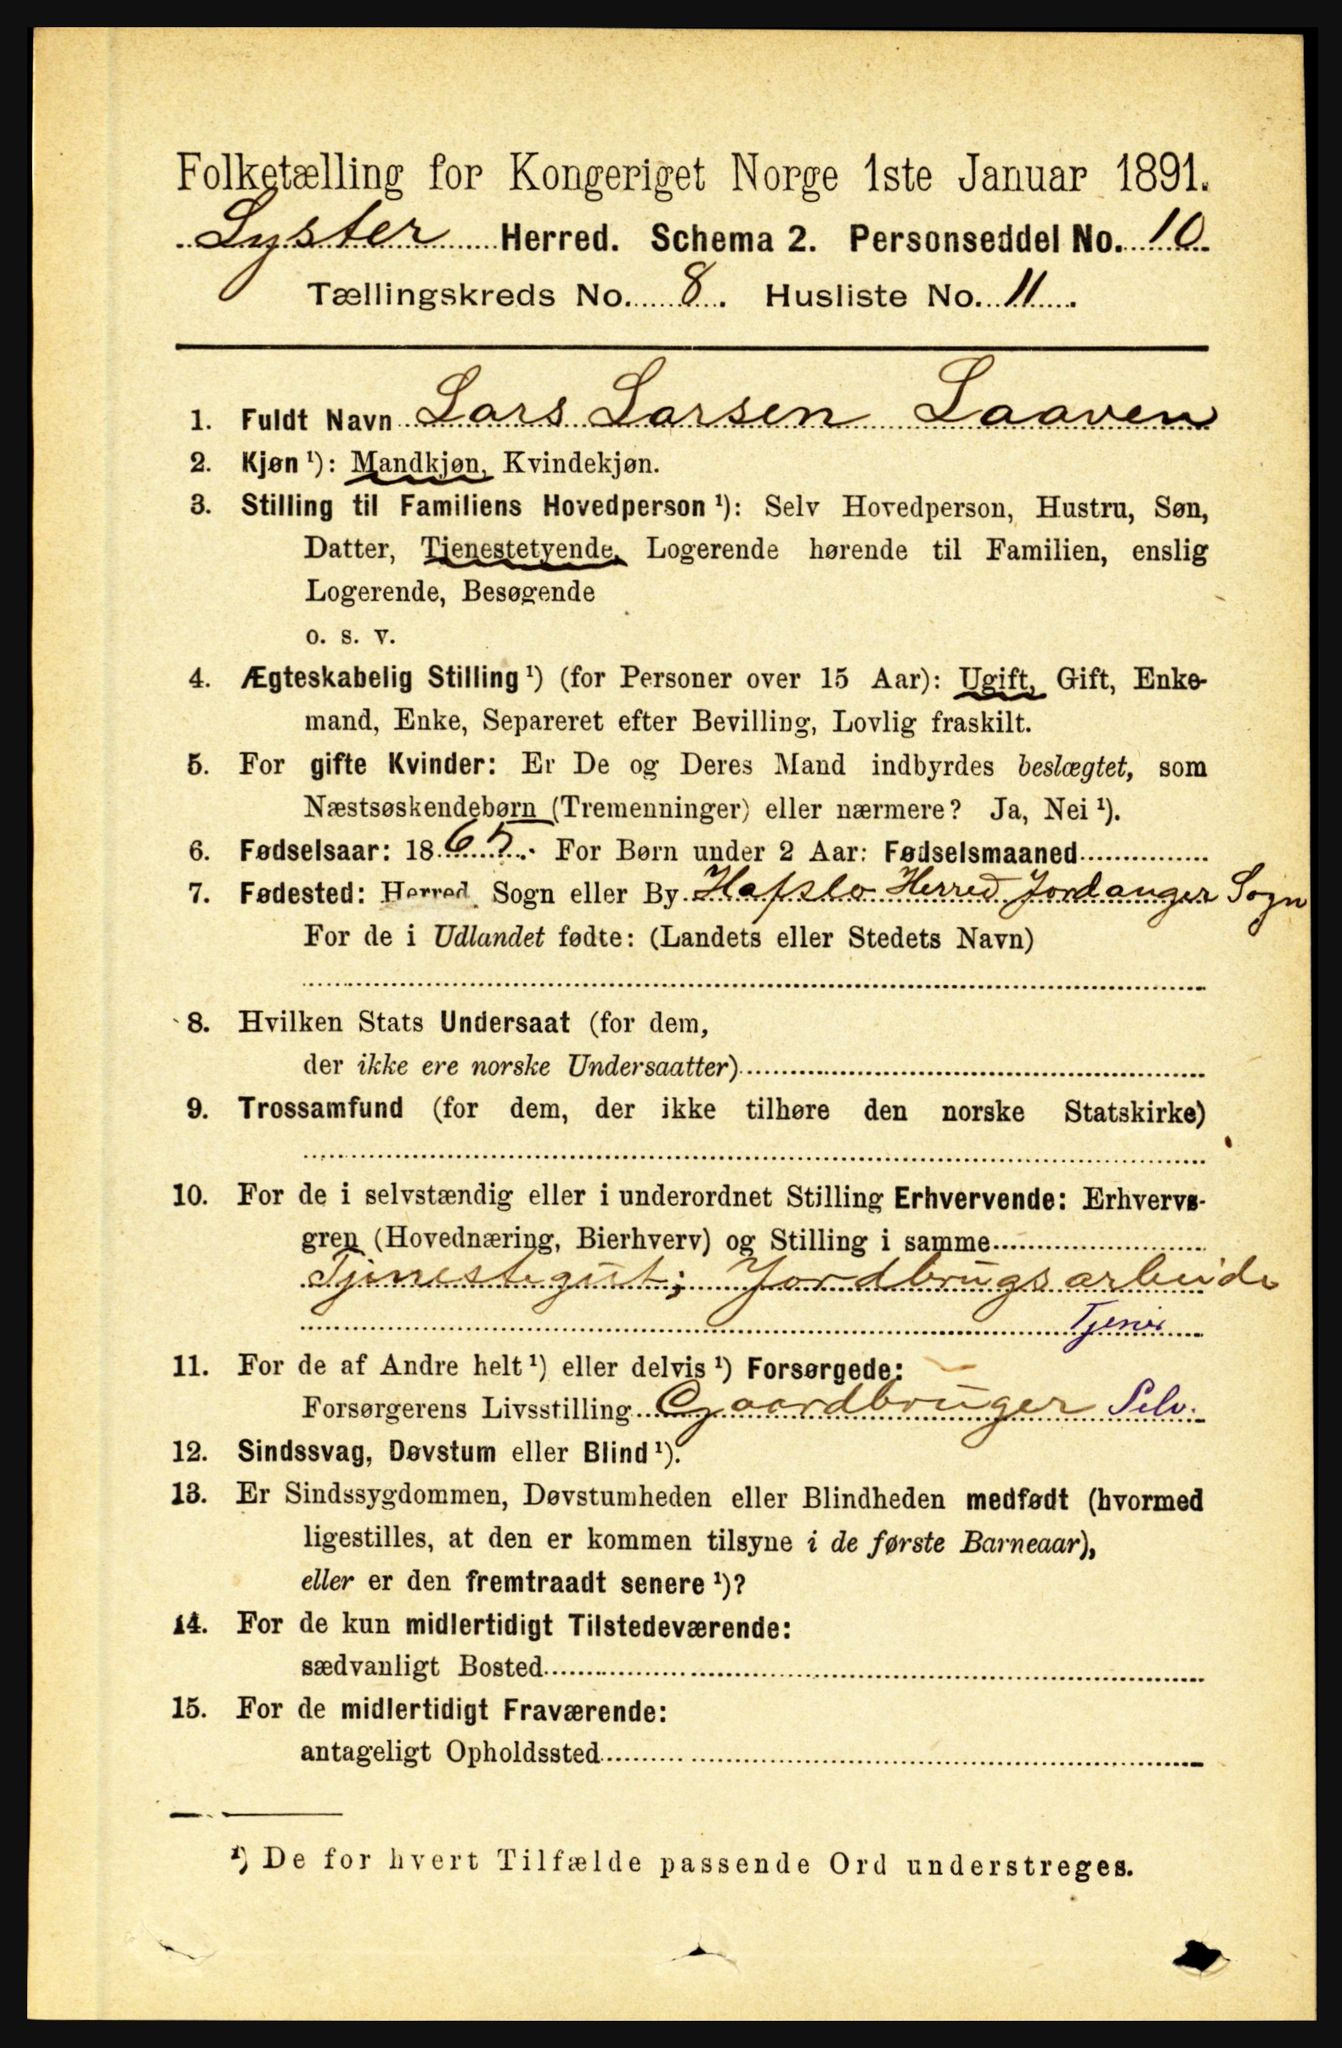 Folketælling for Kongeriget Norge 1ste Januar 1891.
Lyster Herred. Schema 2. Personseddel No. 10
Tællingskreds No. 8. Husliste No. 11.
1. Fuldt Navn Lars Larsen Laaven
2. Kjøn ¹): Mandkjøn, Kvindekjøn.
3. Stilling til Familiens Hovedperson ¹): Selv Hovedperson, Hustru, Søn,
Datter, Tjenestetyende, Logerende hørende til Familien, enslig
Logerende, Besøgende
o. s. v.
4. Ægteskabelig Stilling ¹) (for Personer over 15 Aar): Ugift, Gift, Enke-
mand, Enke, Separeret efter Bevilling, Lovlig fraskilt.
5. For gifte Kvinder: Er De og Deres Mand indbyrdes beslægtet, som
Næstsøskendebørn (Tremenninger) eller nærmere? Ja, Nei ¹).
6. Fødselsaar: 1865. For Børn under 2 Aar: Fødselsmaaned
7. Fødested: Herred, Sogn eller By Hafslo Herred Jordanger Sogn
For de i Udlandet fødte: (Landets eller Stedets Navn)
8. Hvilken Stats Undersaat (for dem,
der ikke ere norske Undersaatter)
9. Trossamfund (for dem, der ikke tilhøre den norske Statskirke)
10. For de i selvstændig eller i underordnet Stilling Erhvervende: Erhvervs-
gren (Hovednæring, Bierhverv) og Stilling i samme
Tjenestegut; Jordbrugsarbeide
Tjener
11. For de af Andre helt ¹) eller delvis ¹) Forsørgede:
Forsørgerens Livsstilling Gaardbruger Selv.
12. Sindssvag, Døvstum eller Blind ¹).
13. Er Sindssygdommen, Døvstumheden eller Blindheden medfødt (hvormed
ligestilles, at den er kommen tilsyne i de første Barneaar),
eller er den fremtraadt senere ¹)?
14. For de kun midlertidigt Tilstedeværende:
sædvanligt Bosted
15. For de midlertidigt Fraværende:
antageligt Opholdssted
¹) De for hvert Tilfælde passende Ord understreges.